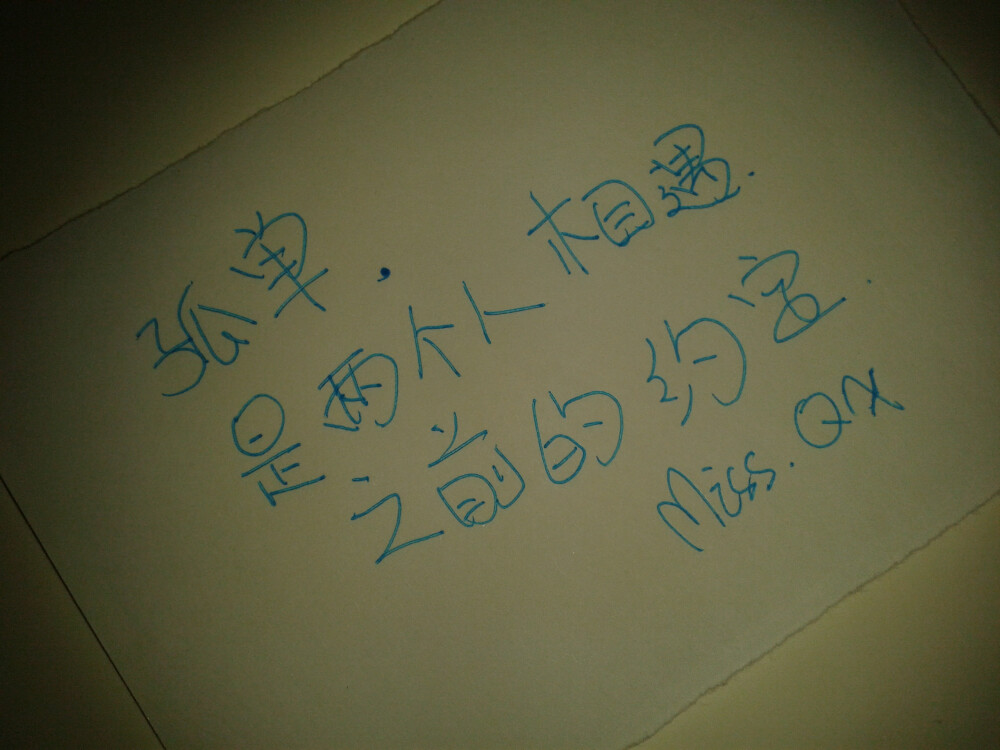 孤单.
是两个人相遇.
之前的约定.
Miss. QX